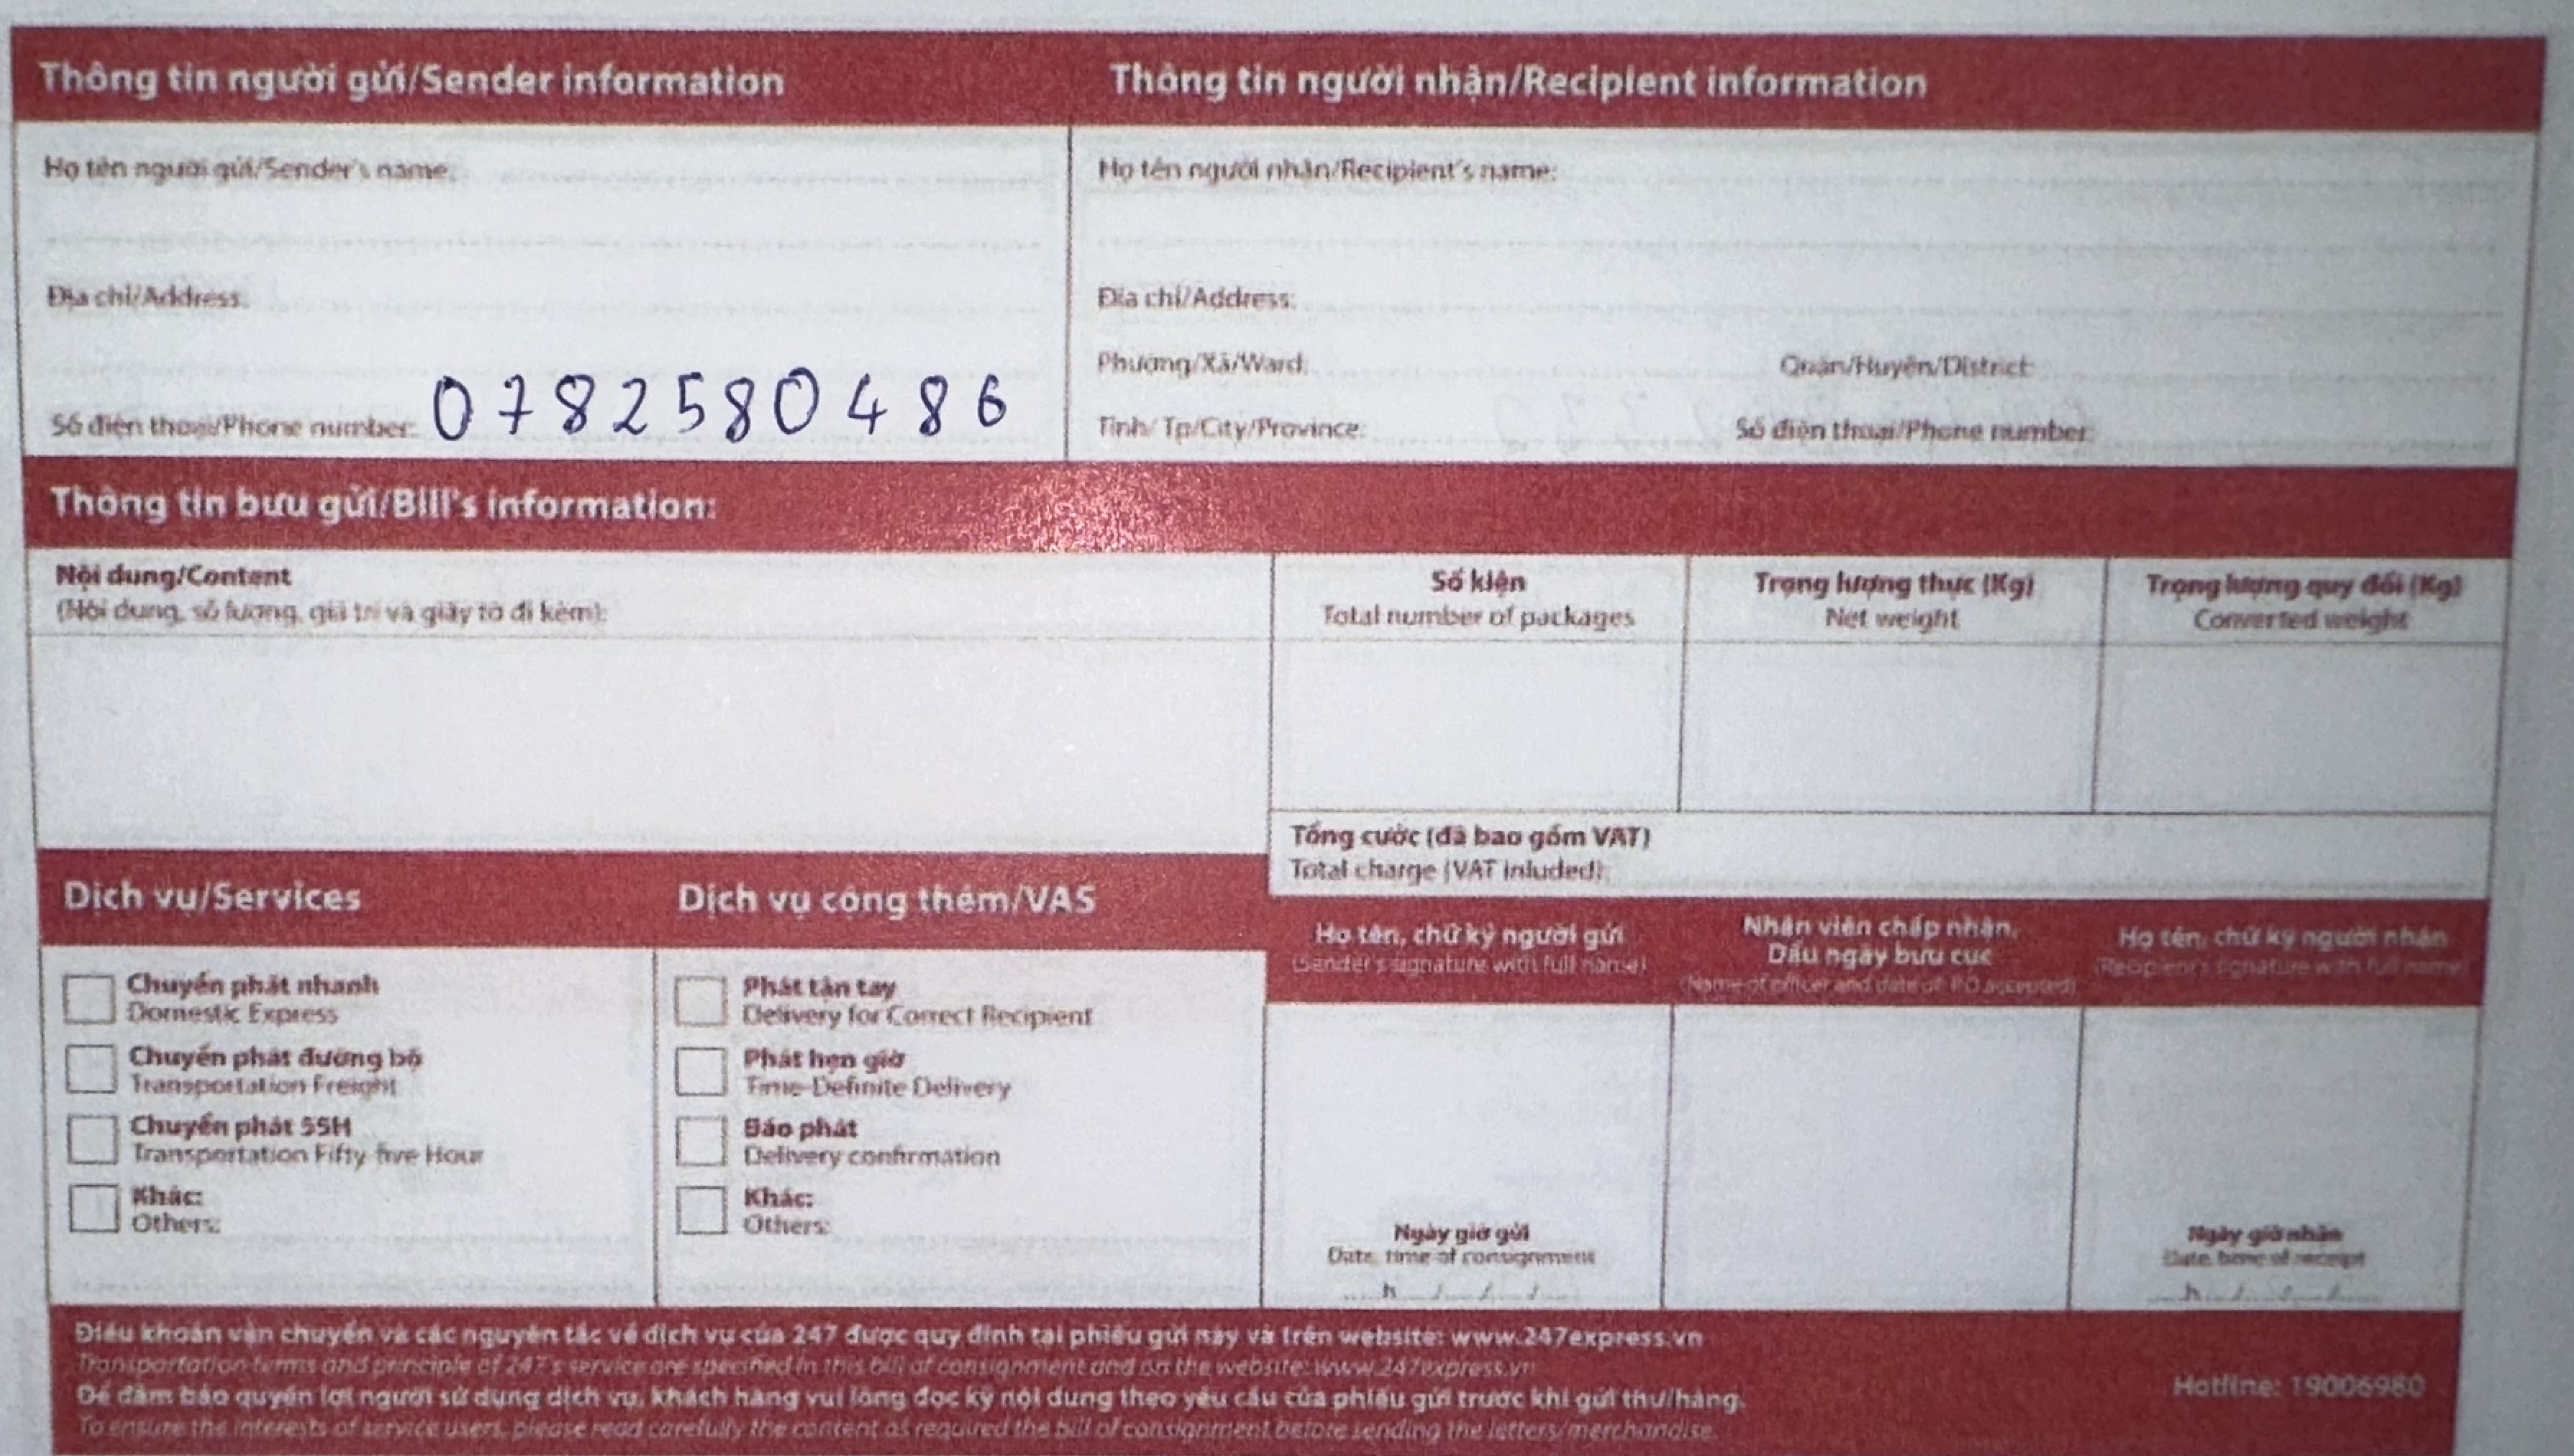 Thông tin người gửi/Sender information
Thông tin người nhận/Recipient information
Họ tên người gửi/Sender's name:
Họ tên người nhận/Recipient's name:
Địa chỉ/Address:
Địa chỉ/Address:
Phường/Xã/Ward:
Quận/Huyện/District:
Số điện thoại/Phone number: 0782580486
Tỉnh/ Tp/City/Province:
Số điện thoại/Phone number:
Thông tin bưu gửi/Bill's information:
Nội dung/Content
(Nội dung, số lượng, giá trị và giấy tờ đi kèm):
Số kiện
Total number of packages
Trọng lượng thực (Kg)
Net weight
Trọng lượng quy đổi (Kg)
Converted weight
Tổng cước (đã bao gồm VAT)
Total charge (VAT inluded):
Dịch vụ/Services
Chuyển phát nhanh
Domestic Express
Chuyển phát đường bộ
Transportation Freight
Chuyển phát 55H
Transportation Fifty-five Hour
Khác:
Others:
Dịch vụ cộng thêm/VAS
Phát tận tay
Delivery for Correct Recipient
Phát hẹn giờ
Time-Definite Delivery
Báo phát
Delivery confirmation
Khác:
Others:
Họ tên, chữ ký người gửi
(Sender's signature with full name)
Ngày giờ gửi
Date, time of consignment
......h....../....../....../......
Nhân viên chấp nhận,
Dấu ngày bưu cục
(Name of officer and date of P.O accepted)
Họ tên, chữ ký người nhận
(Recipient's signature with full name)
Ngày giờ nhận
Date, time of receipt
......h....../....../....../......
Điều khoản vận chuyển và các nguyên tắc về dịch vụ của 247 được quy định tại phiếu gửi này và trên website: www.247express.vn
Transportation terms and principle of 247's service are specified in this bill of consignment and on the website: www.247express.vn
Để đảm bảo quyền lợi người sử dụng dịch vụ, khách hàng vui lòng đọc kỹ nội dung theo yêu cầu của phiếu gửi trước khi gửi thư/hàng.
To ensure the interests of service users, please read carefully the content as required the bill of consignment before sending the letters/merchandise.
Hotline: 19006980